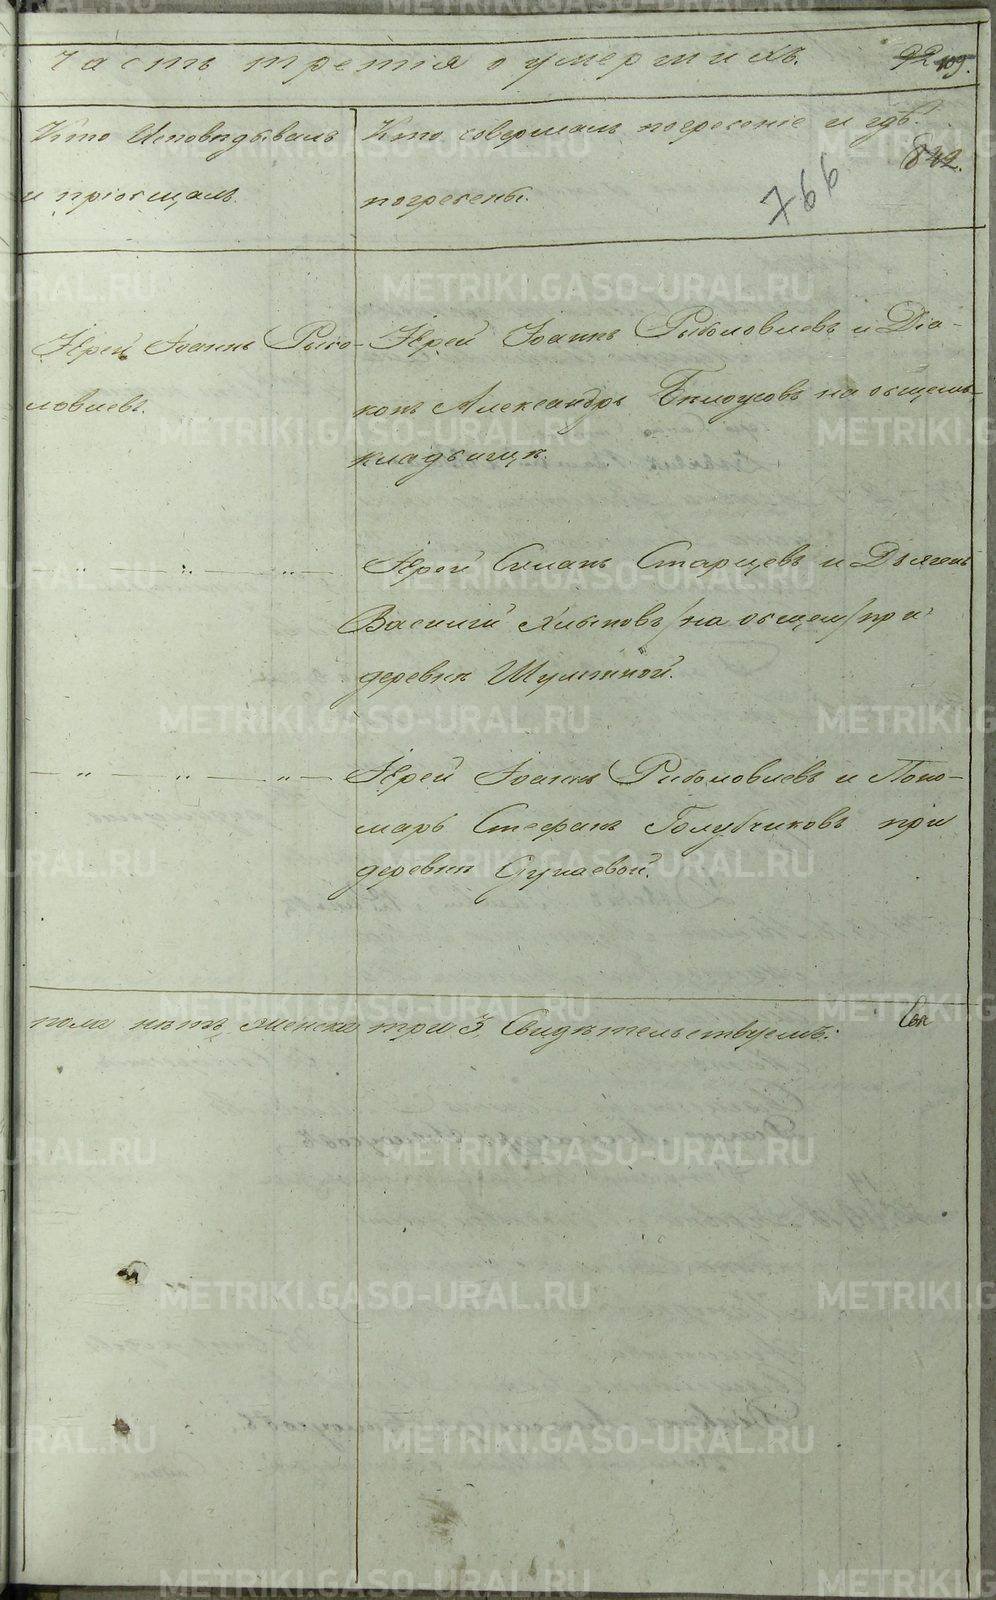 Часть третія о умершихъ. 92 109.
Кто Исповѣдывалъ
и пріобщалъ.
Кто совершалъ погребеніе и гдѣ
погребены.
842.
766
Іерей Іоаннъ Рыбо-
ловлевъ.
Іерей Іоаннъ Рыболовлевъ и Діа-
конъ Александръ Бѣлоусовъ на общемъ
кладбищѣ.
— „ — „ — „ —
Іерей Симонъ Старцевъ и Дьячекъ
Василій Хлыновъ /на общем/ при
деревнѣ Шумихиной.
— „ — „ — „ —
Іерей Іоаннъ Рыболовлевъ и Поно-
марь Стефанъ Голубчиковъ при
деревнѣ
пола нѣтъ, женска три 3, Свидѣтельствуемъ:
METRIKI.GASO-URAL.RU